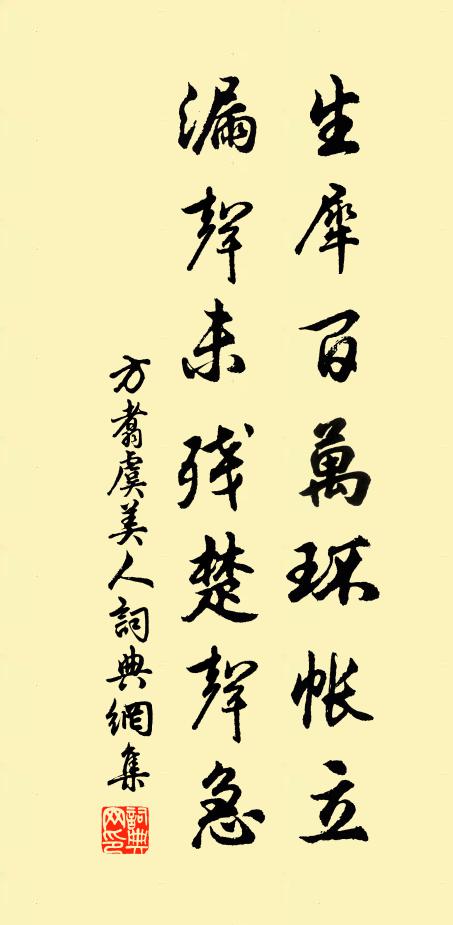 生犀百萬環帳立
漏聲未殘楚聲急
方翥虞美人詞典網集
詞典網印